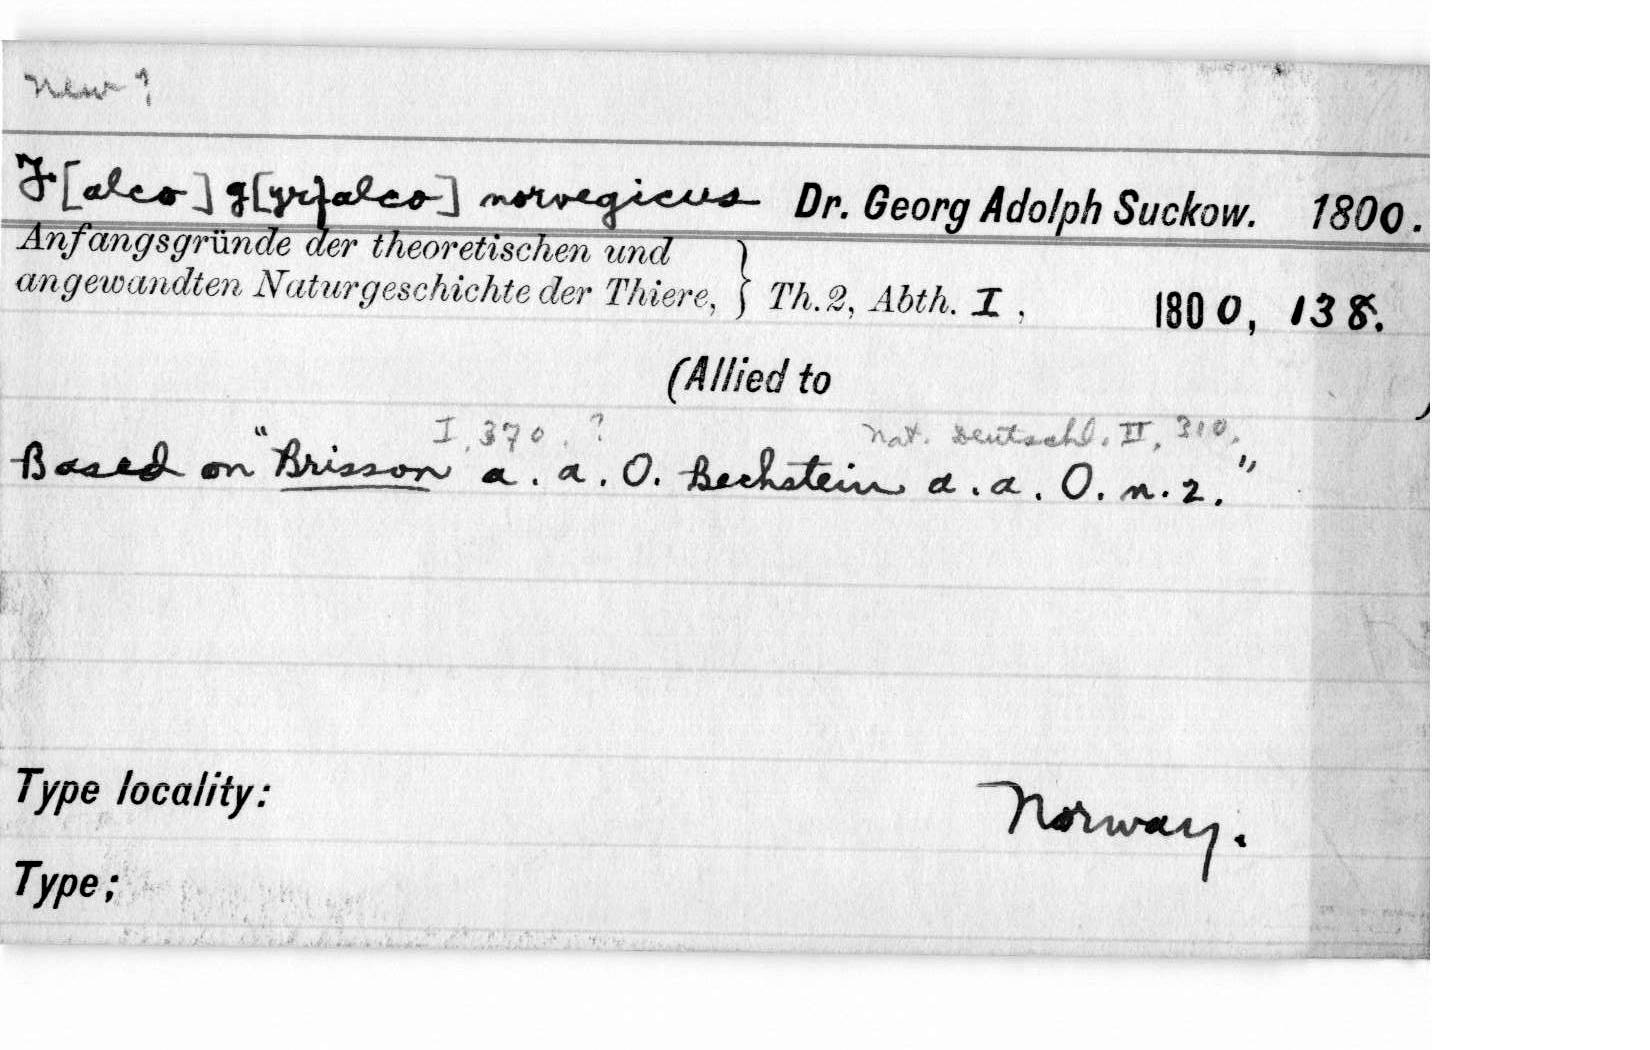 New?
F[alco] g[yrfalco] norvegicus Dr. Georg Adolph Suckow. 1800.
Anfangsgründe der theoretischen und
angewandten Naturgeschichte der Thiere, } Th. 2, Abth. I, 1800, 138.
(Allied to )
I, 370. ? Nat. Deutschl. II, 310.
Based on "Brisson a. a. O. Bechstein a. a. O. n. 2."
Type locality: Norway.
Type;